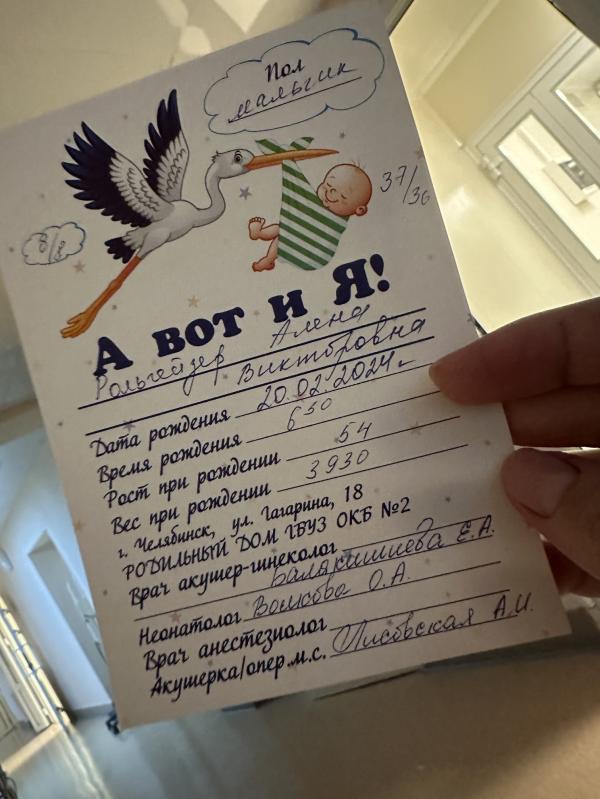 Пол
мальчик
37/36
8/8
А вот и Я!
Алена
Викторовна
Дата рождения 20.02.2024 г
Время рождения 6 50
Рост при рождении 54
Вес при рождении 3930
г. Челябинск, ул. Гагарина, 18
РОДИЛЬНЫЙ ДОМ ГБУЗ ОКБ №2
Врач акушер-гинеколог
Е.А.
Неонатолог Волкова О.А.
Врач анестезиолог
Акушерка/опер.м.с. Лисовская А.И.